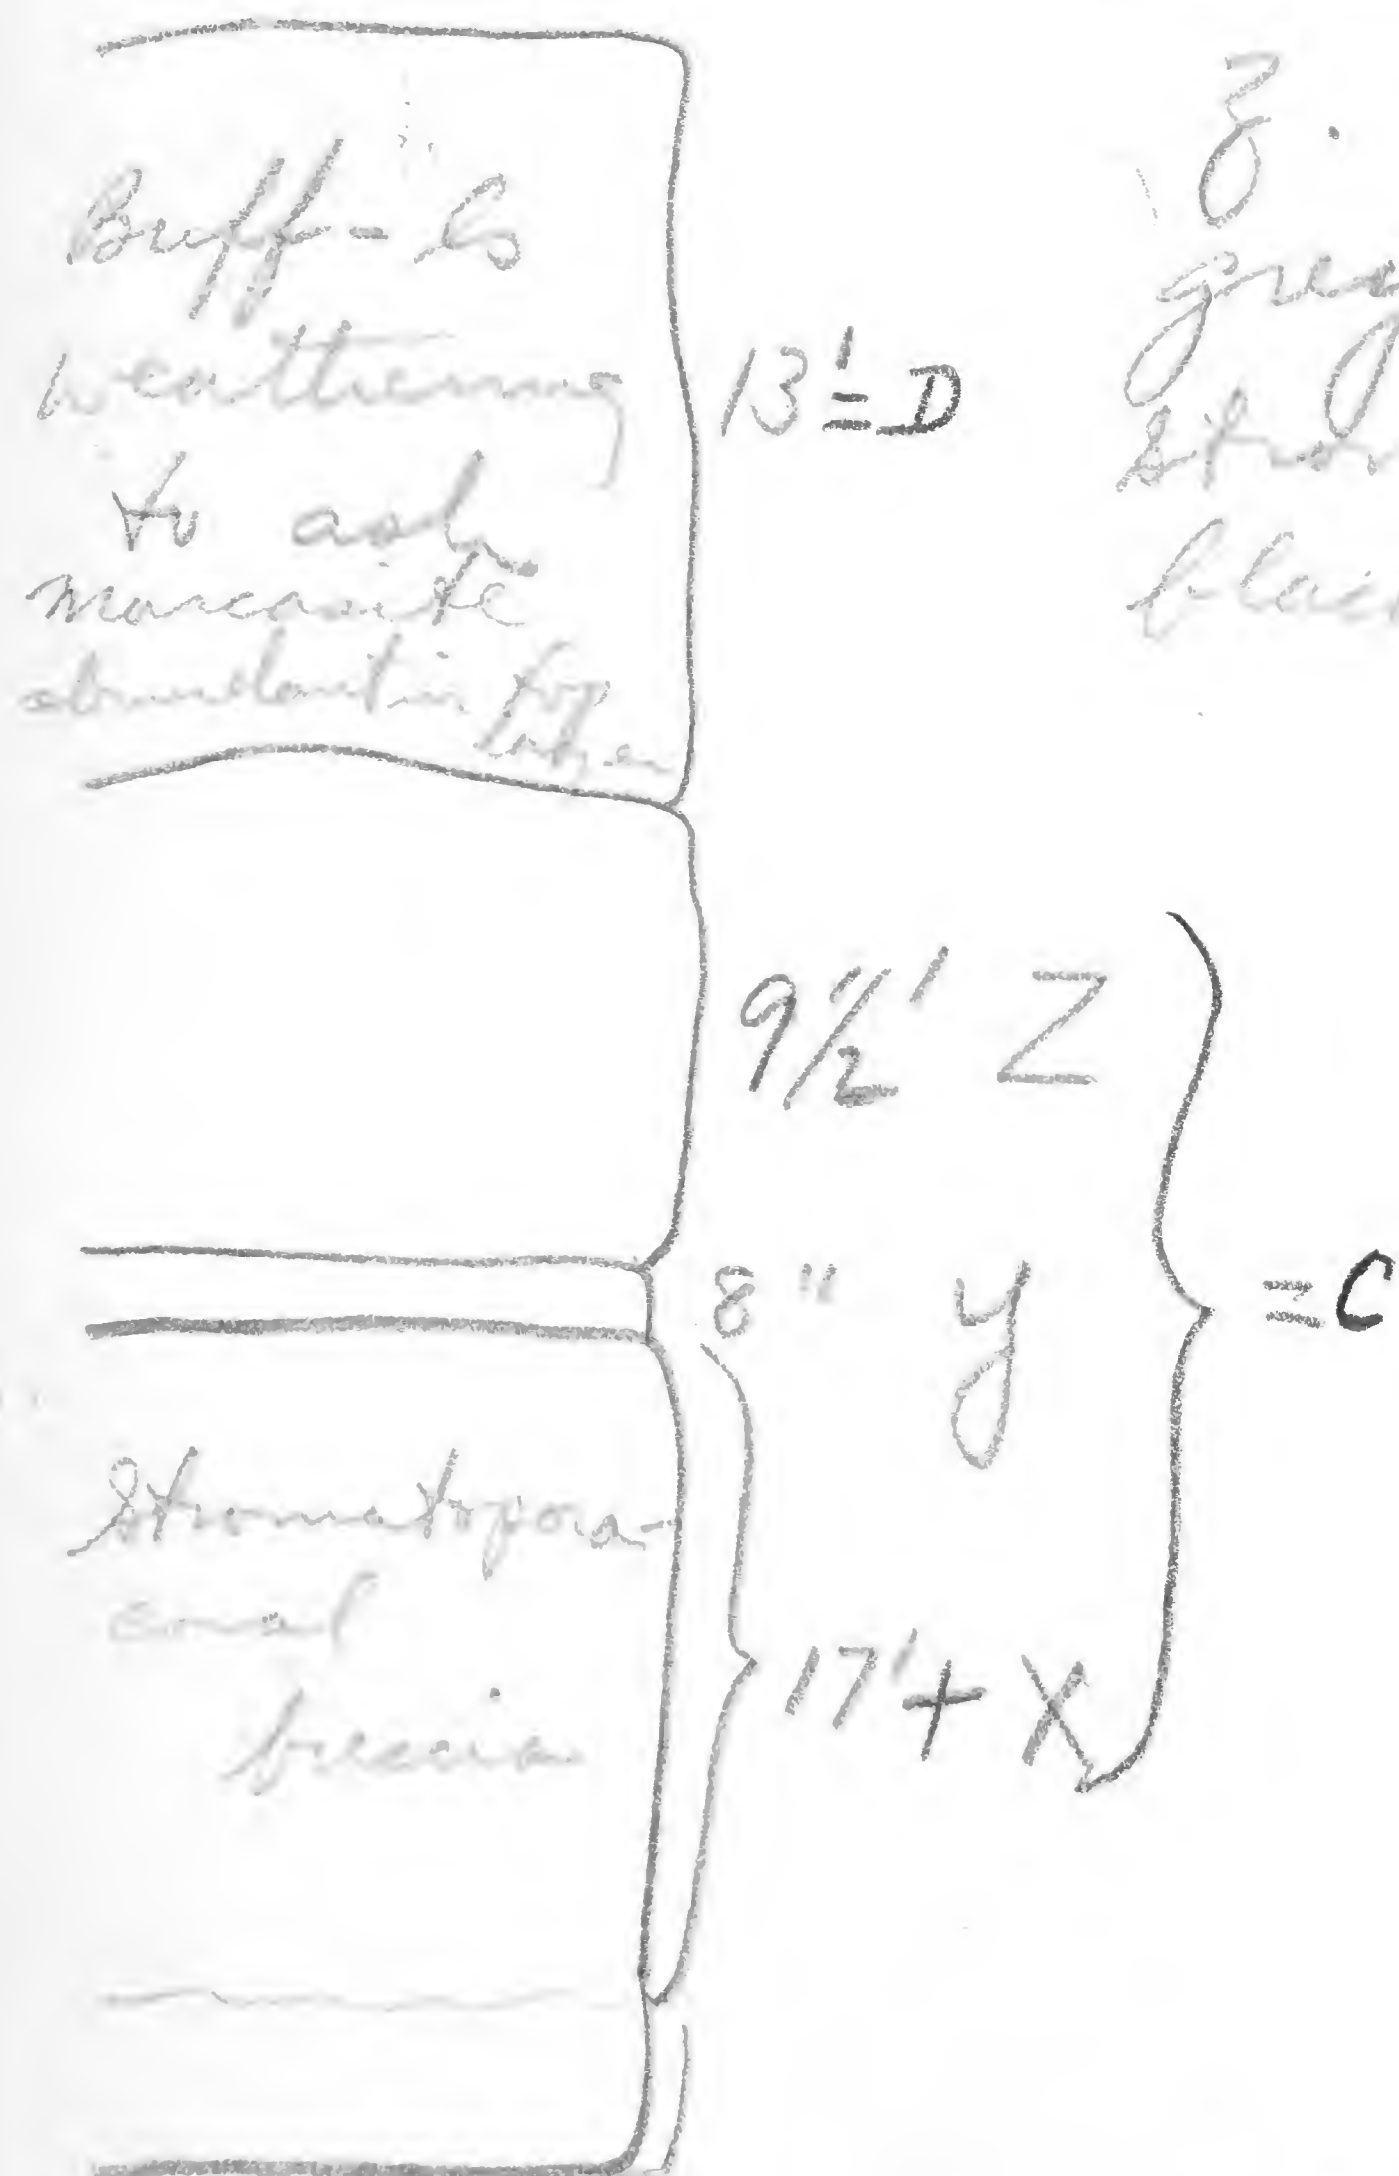 Buff - ls
weathering
to ash
marcasite
abundant in top
13' = D
z.
grey
stro
blac
9 1/2' Z
8" y
= C
Stromatopora-
coral
breccia
17'+ X